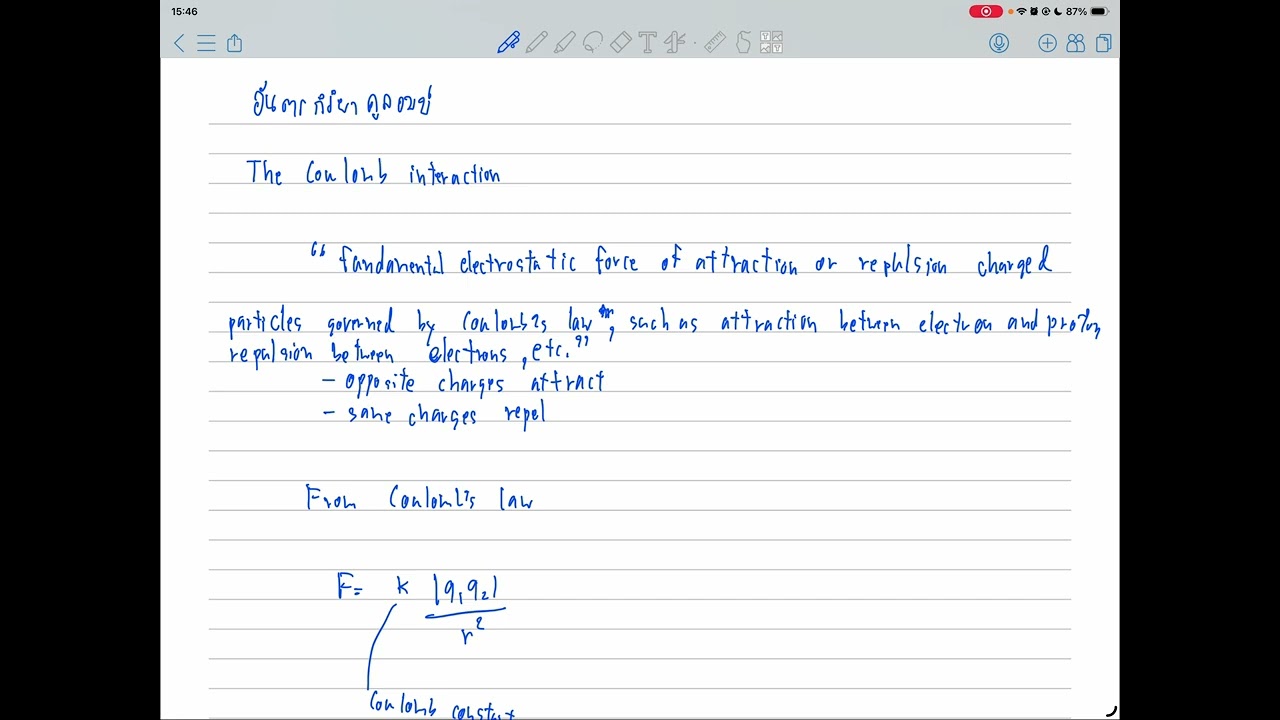 15:46
87%
อันตรกิริยาคูลอมบ์
The Coulomb interaction
“ fundamental electrostatic force of attraction or repulsion charged
particles governed by Coulomb's law, such as attraction between electron and proton,
repulsion between electrons, etc.”
- opposite charges attract
- same charges repel
From Coulomb's law
F= k |q₁q₂|
r²
Coulomb constant